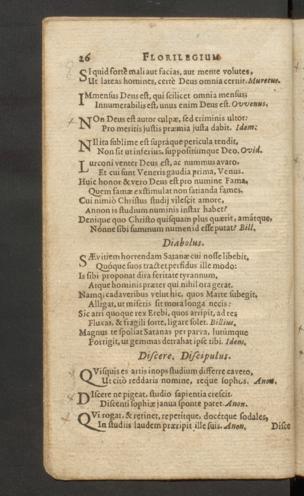 26 FLORILEGIUM
SI quid fortè mali aut facias, aut mente volutes,
Ut lateas homines, certè Deus omnia cernit. Muretus.
IMmensus Deus est, qui scilicet omnia mensus;
Innumerabilis est, unus enim Deus est. Ovvenus.
NOn Deus est autor culpæ, sed criminis ultor:
Pro meritis justis præmia justa dabit. Idem:
NIl ita sublime est supráque pericula tendit,
Non sit ut inferius, suppositúmque Deo. Ovid.
LUrconi venter Deus est, ac nummus avaro.
Et cui sunt Veneris gaudia prima, Venus.
Huic honor & vero Deus est pro numine Fama,
Quem famæ exstimulat non satianda fames.
Cui nimiò Christus studij vilescit amore,
Annon is studium numinis instar habet?
Denique quo Christo quisquam plus quærit, amátque,
Nónne sibi summum numen id esse putat? Bill.
Diabolus.
SÆvitiem horrendam Satanæ cui nosse libebit,
Quóque suos tractet perfidus ille modo:
Is sibi proponat dira feritate tyrannum,
Atque hominis præter qui nihil ora gerat.
Namq; cadaveribus velut hic, quos Marte subegit,
Alligat, ut miseris sit mora longa necis:
Sic atri quoque rex Erebi, quos arripit, ad res
Fluxas, & fragili sorte, ligare solet. Billius.
Magnus te spoliat Satanas per parva, lutúmque
Porrigit, ut gemmas detrahat ipse tibi. Idem.
Discere, Discipulus.
QVisquis es artis inops studium differre caveto,
Ut citò reddaris nomine, reque sophus. Anon.
DIscere ne pigeat, studio sapientia crescit.
Discenti sophiæ janua sponte patet. Anon.
QVi rogat, & retinet, repetítque, docétque sodales,
In studiis laudem præripit ille suis. Anon.
Disce